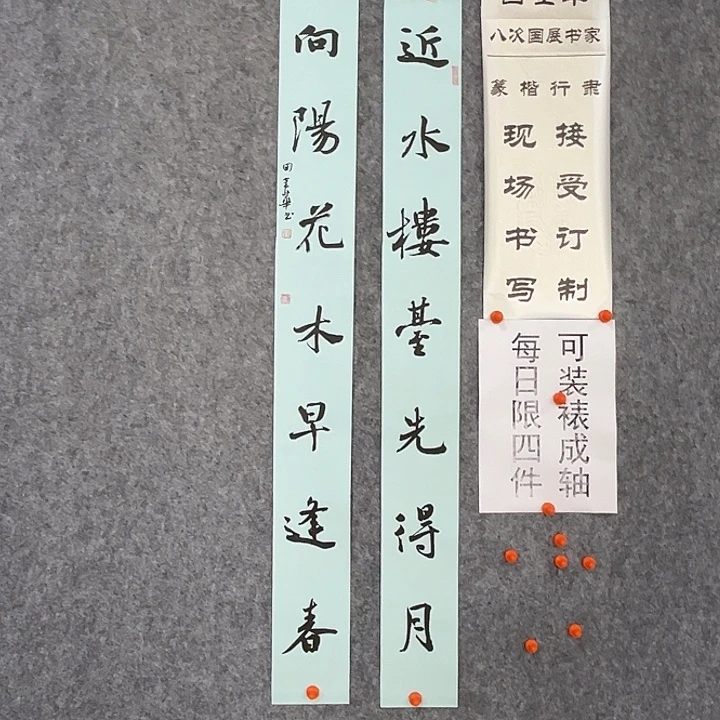 近水樓臺先得月
向陽花木早逢春
八次国展书家
篆楷行隶
接受订制
现场书写
可装裱成轴
每日限四件